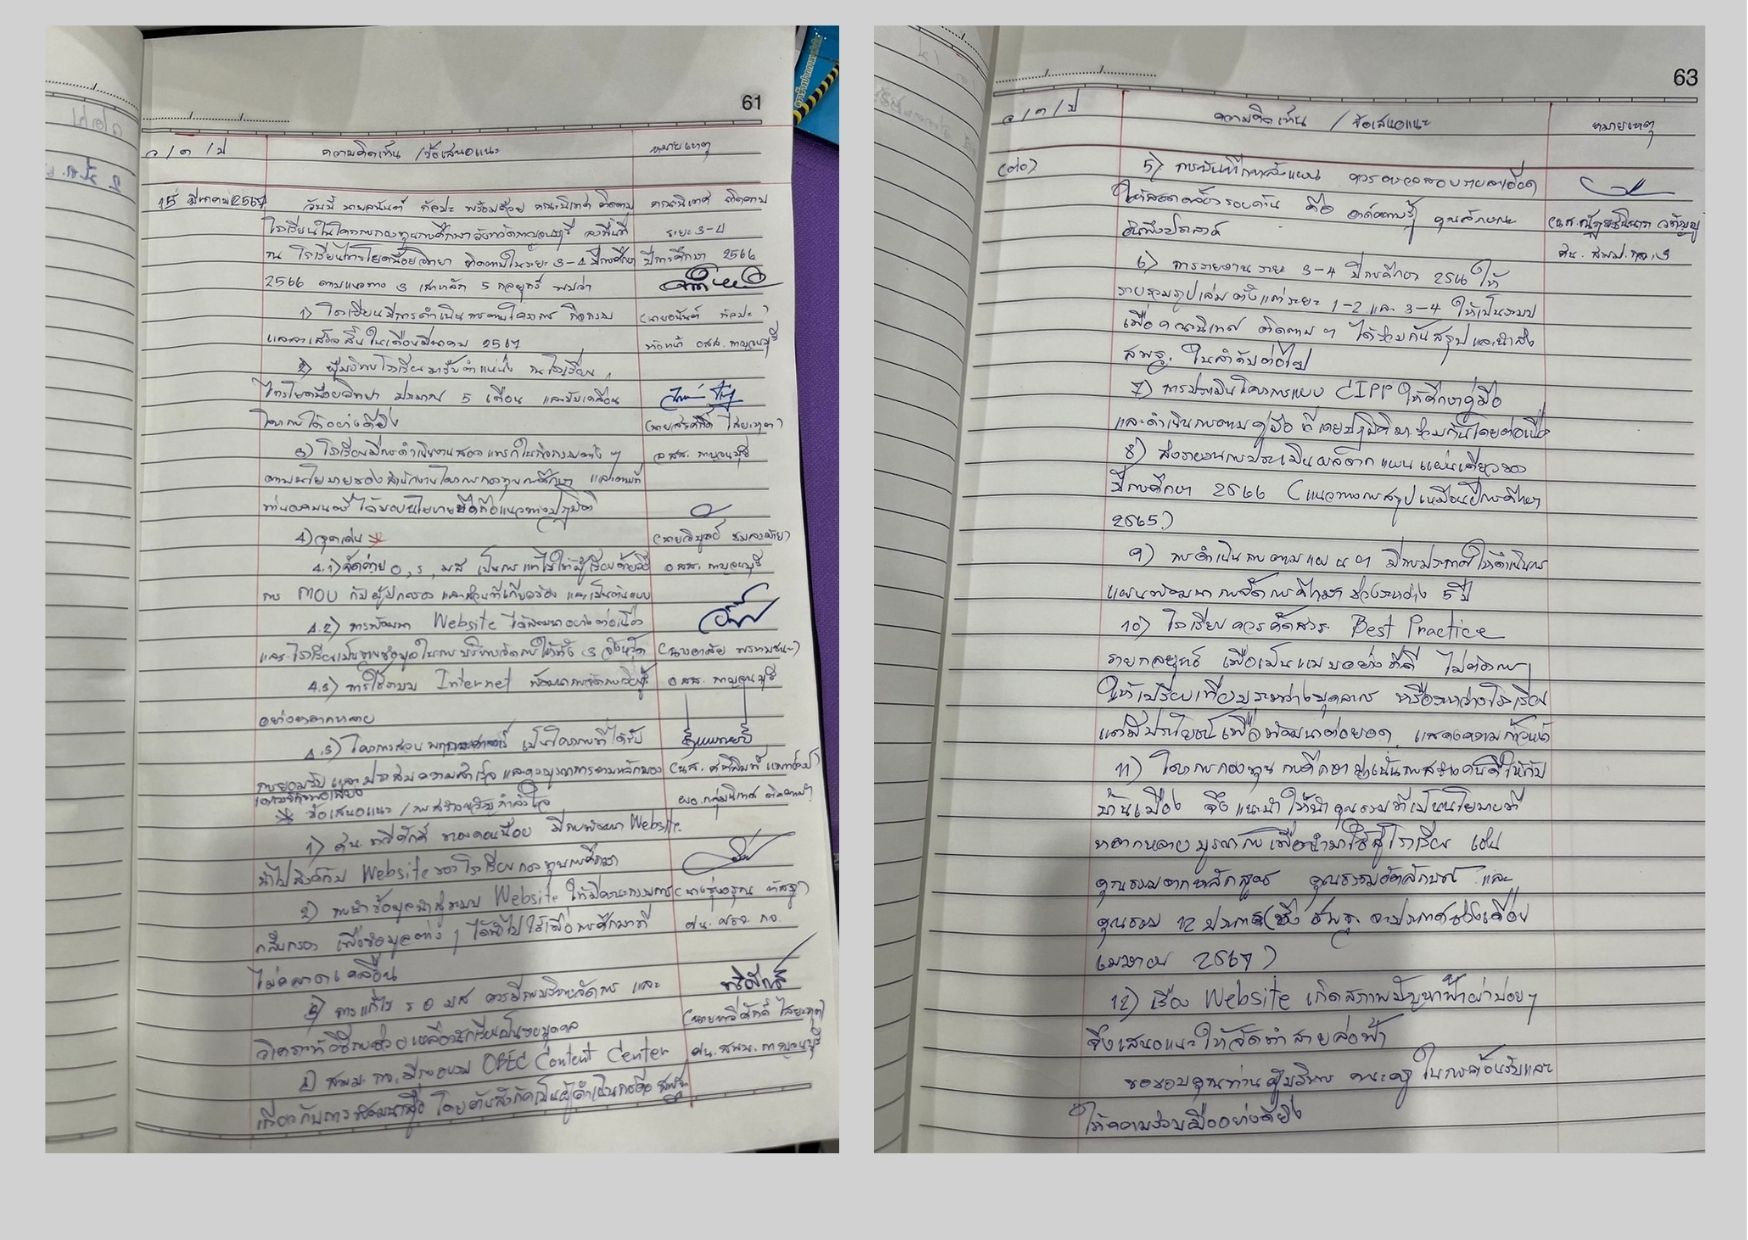 61
ว / ด / ป ความคิดเห็น / ข้อเสนอแนะ หมายเหตุ
15 มีนาคม 2567 วันนี้ นายอนันต์ กัลปะ พร้อมด้วย คณะนิเทศ ติดตาม คณะนิเทศ ติดตาม
โรงเรียนในโครงการกองทุนการศึกษาจังหวัดกาญจนบุรี ลงพื้นที่ ระยะ 3-4
ณ โรงเรียนไทรโยคน้อยวิทยา ติดตามในระยะ 3-4 ปีการศึกษา ปีการศึกษา 2566
2566 ตามแนวทาง 3 เสาหลัก 5 กลยุทธ์ พบว่า
1) โรงเรียนมีการดำเนินการตามโครงการ กิจกรรม (นายอนันต์ กัลปะ)
และจะเสร็จสิ้นในเดือนมีนาคม 2567 หัวหน้า อสส. กาญจนบุรี
2) ผู้บริหารโรงเรียนมารับตำแหน่ง ณ โรงเรียน
ไทรโยคน้อยวิทยา ประมาณ 5 เดือน และขับเคลื่อน
โครงการได้อย่างดียิ่ง (นายเสริมศักดิ์ ไสยเวทา)
3) โรงเรียนมีการดำเนินงานสอดแทรกในกิจกรรมต่าง ๆ อสส. กาญจนบุรี
ตามนโยบายของสำนักงานโครงการกองทุนการศึกษา และตามที่
ท่านองคมนตรี ได้มอบนโยบายยึดถือแนวทางปฏิบัติ
4) จุดเด่น
4.1) จัดค่าย 0, ร, มส เป็นการแก้ไขให้ผู้เรียนด้วยวิธี อสส. กาญจนบุรี
การ MOU กับผู้ปกครอง และส่วนที่เกี่ยวข้อง และเป็นต้นแบบ
4.2) การพัฒนา Website ได้พัฒนาอย่างต่อเนื่อง
และโรงเรียนเป็นฐานข้อมูลในการบริหารจัดการให้ทั้ง 3 จังหวัด
4.3) การใช้ระบบ Internet พัฒนาการจัดการเรียนรู้ อสส. กาญจนบุรี
อย่างหลากหลาย
4.3) โครงการสวนพฤกษศาสตร์ เป็นโครงการที่ได้รับ
การยอมรับ และประสบความสำเร็จ และบูรณาการตามหลักของ
เศรษฐกิจพอเพียง ผอ. กลุ่มนิเทศ ติดตามฯ
ข้อเสนอแนะ / การสร้างขวัญกำลังใจ
1) ศน. ทวีศักดิ์ มีการพัฒนา Website
นำไปลิงค์กับ Website ของโรงเรียนกองทุนการศึกษา
2) การนำข้อมูลเข้าสู่ระบบ Website ให้มีคณะกรรมการ
กลั่นกรอง เพื่อข้อมูลต่าง ๆ ได้นำไปใช้เพื่อการศึกษาที่ ศน. ศธจ. กจ.
ไม่คลาดเคลื่อน
3) การแก้ไข ร 0 มส ควรมีการบริหารจัดการ และ ทวีศักดิ์
วิเคราะห์วิธีการช่วยเหลือนักเรียนเป็นรายบุคคล
4) สพม. กจ. มีการอบรม OBEC Content Center ศน. สพม. กาญจนบุรี
เกี่ยวกับการพัฒนาสื่อ โดยต้นสังกัดเป็นผู้ดำเนินการคือ สพฐ.
63
ว / ด / ป ความคิดเห็น / ข้อเสนอแนะ หมายเหตุ
(ต่อ) 5) การบันทึกหลังแผน ควรตรวจสอบรายละเอียด
ให้สอดคล้องรอบด้าน คือ องค์ความรู้ คุณลักษณะ
อันพึงประสงค์ ศน. สพป. กจ. 3
6) การรายงานระยะ 3-4 ปีการศึกษา 2566 ให้
รายงานรูปเล่มตั้งแต่ระยะ 1-2 และ 3-4 ให้เป็นระบบ
เพื่อคณะนิเทศ ติดตาม ฯ ได้ร่วมกันสรุปและนำส่ง
สพฐ. ในลำดับต่อไป
7) การประเมินโครงการแบบ CIPP ให้ศึกษาคู่มือ
และดำเนินการตามคู่มือ ที่เคยปฏิบัติมาร่วมกันโดยต่อเนื่อง
8) ส่งรายงานการประเมินผลจากแผนแผ่นเดียวของ
ปีการศึกษา 2566 (แนวทางการสรุปเหมือนปีการศึกษา
2565)
9) การดำเนินการตามแผน ฯ มีการประกาศให้ดำเนินการ
แผนพัฒนาการจัดการศึกษา ช่วงระหว่าง 5 ปี
10) โรงเรียนควรคัดสรร Best Practice
รายกลยุทธ์ เพื่อเป็นแบบอย่างที่ดี ไม่ต้องการ
ให้เปรียบเทียบระหว่างบุคลากร หรือระหว่างโรงเรียน
แต่มีประโยชน์เพื่อพัฒนาต่อยอด แสดงความก้าวหน้า
11) โครงการกองทุนการศึกษามุ่งเน้นการสร้างคนดีให้กับ
บ้านเมือง จึงแนะนำให้นำคุณธรรมที่เป็นนโยบายที่
หลากหลายบูรณาการเพื่อนำมาใช้สู่โรงเรียน เช่น
คุณธรรมจากหลักสูตร คุณธรรมอัตลักษณ์ และ
คุณธรรม 12 ประการ (ซึ่ง สพฐ. จะประกาศช่วงเดือน
เมษายน 2567)
12) เรื่อง Website เกิดสภาพปัญหาฟ้าผ่าบ่อย ๆ
จึงเสนอแนะให้จัดทำสายล่อฟ้า
ขอขอบคุณท่านผู้บริหาร คณะครู ในการต้อนรับและ
ให้ความร่วมมืออย่างดียิ่ง